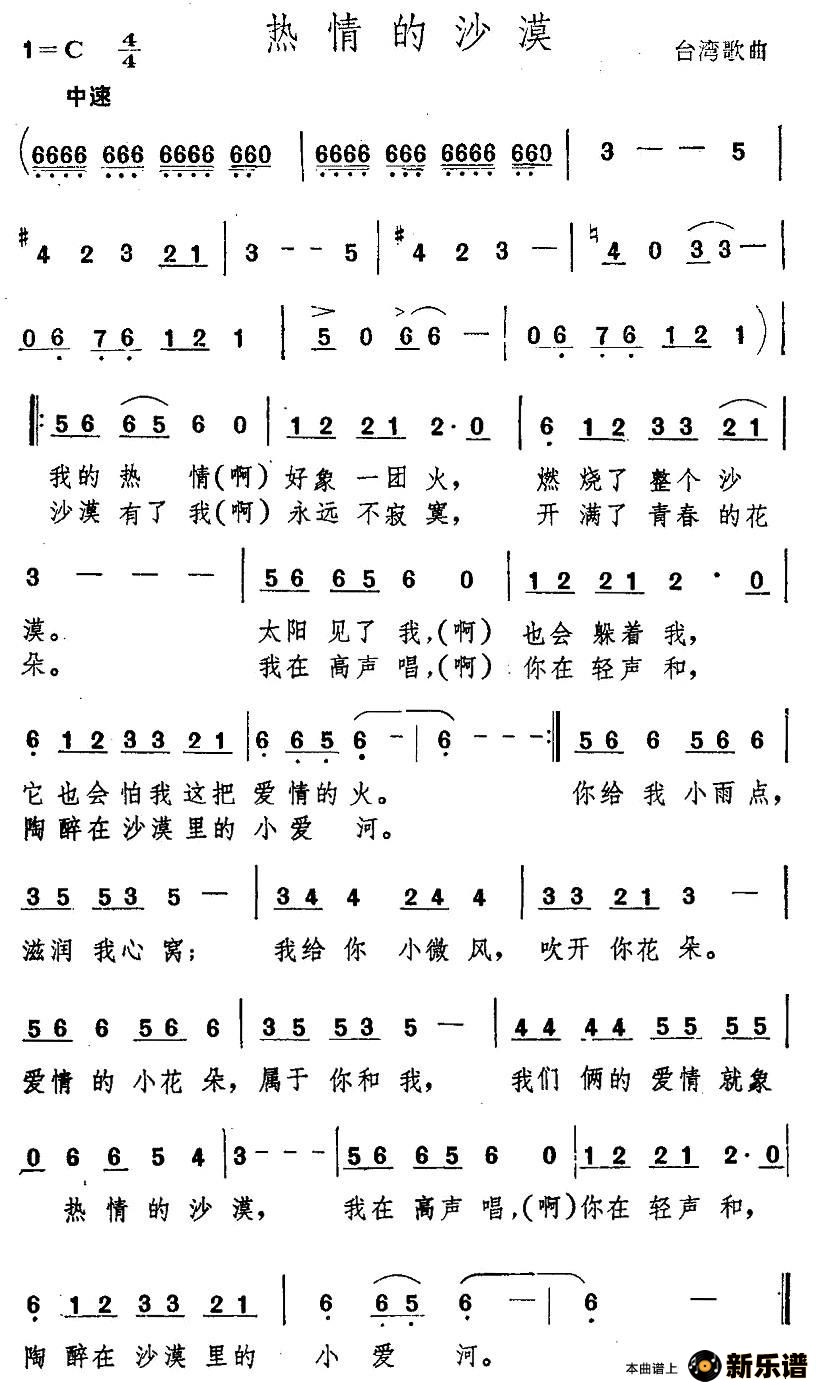 热情的沙漠
1=C 4/4 台湾歌曲
中速
(6666 666 6666 660 | 6666 666 6666 660 | 3 — — 5
#4 2 3 21 | 3 - - 5 | #4 2 3 — | ♮4 0 33 — |
06 76 12 1 | 5 0 66 — | 06 76 12 1) |
‖: 56 65 6 0 | 12 21 2· 0 | 6 12 33 21 |
我的热 情(啊)好象一团火, 燃烧了整个沙
沙漠有了我(啊)永远不寂寞, 开满了青春的花
3 — — — | 56 65 6 0 | 12 21 2 · 0 |
漠。 太阳见了我,(啊) 也会躲着我,
朵。 我在高声唱,(啊) 你在轻声和,
6 12 33 21 | 6 65 6 - | 6 - - - :‖ 56 6 56 6 |
它也会怕我这把爱情的火。 你给我小雨点,
陶醉在沙漠里的小爱 河。
35 53 5 — | 34 4 24 4 | 33 21 3 — |
滋润我心窝; 我给你小微风, 吹开你花朵。
56 6 56 6 | 35 53 5 — | 44 44 55 55 |
爱情的小花朵, 属于你和我, 我们俩的爱情就象
0 6 6 5 4 | 3 - - - | 56 65 6 0 | 12 21 2· 0 |
热情的沙漠, 我在高声唱,(啊)你在轻声和,
6 12 33 21 | 6 65 6 — | 6 — — ‖
陶醉在沙漠里的 小爱 河。
本曲谱上 新乐谱